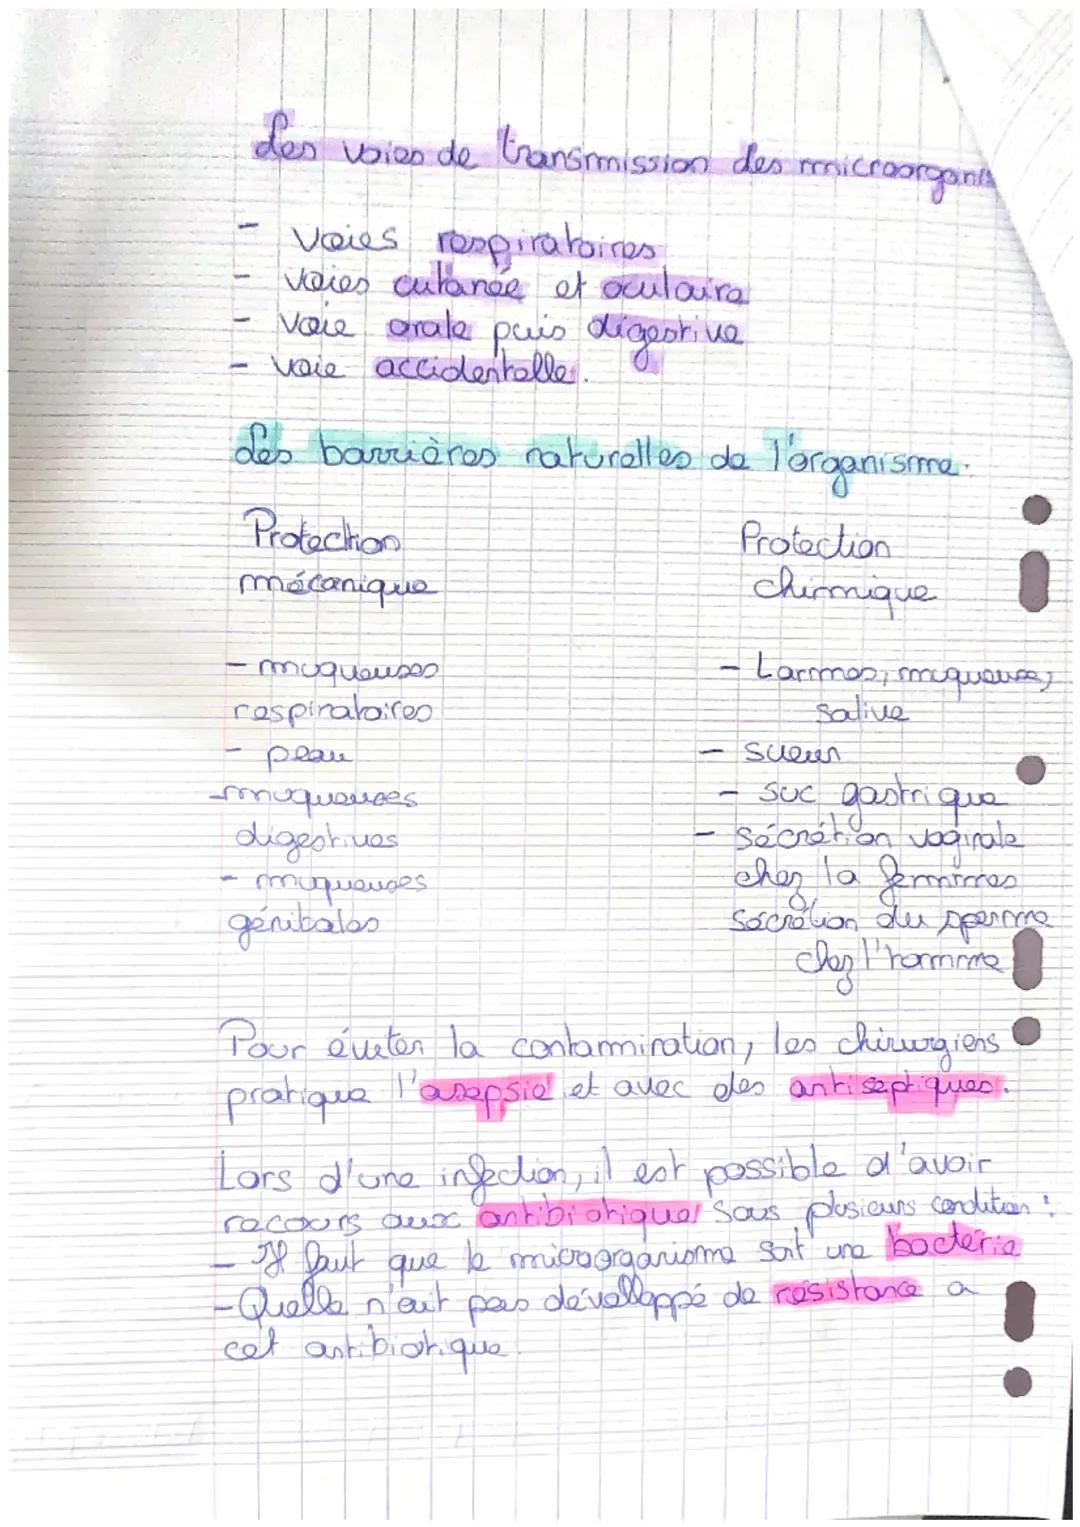 Les voies de transmission des microorganis
- Voies respiratoires
- voies cutanée et oculaire
- voie orale puis digestive
- voie accidentelle.
Les barrières naturelles de l'organisme.
Protection
mécanique
- muqueuses
respiratoires
- peau
- muqueuses
digestives
- muqueuses
génitales
Protection
chimique
- Larmes, muqueuse,
salive
- sueur
- suc gastrique
- sécrétion vaginale
chez la femmes
sécrétion du sperme
chez l'homme
Pour éviter la contamination, les chirurgiens
pratique l'asepsie et avec des antiseptiques.
Lors d'une infection, il est possible d'avoir
recours aux antibiotiques sous plusieurs condition :
- Il faut que le microorganisme soit une bactérie
- Quelle n'ait pas développé de résistance a
cet antibiotique.